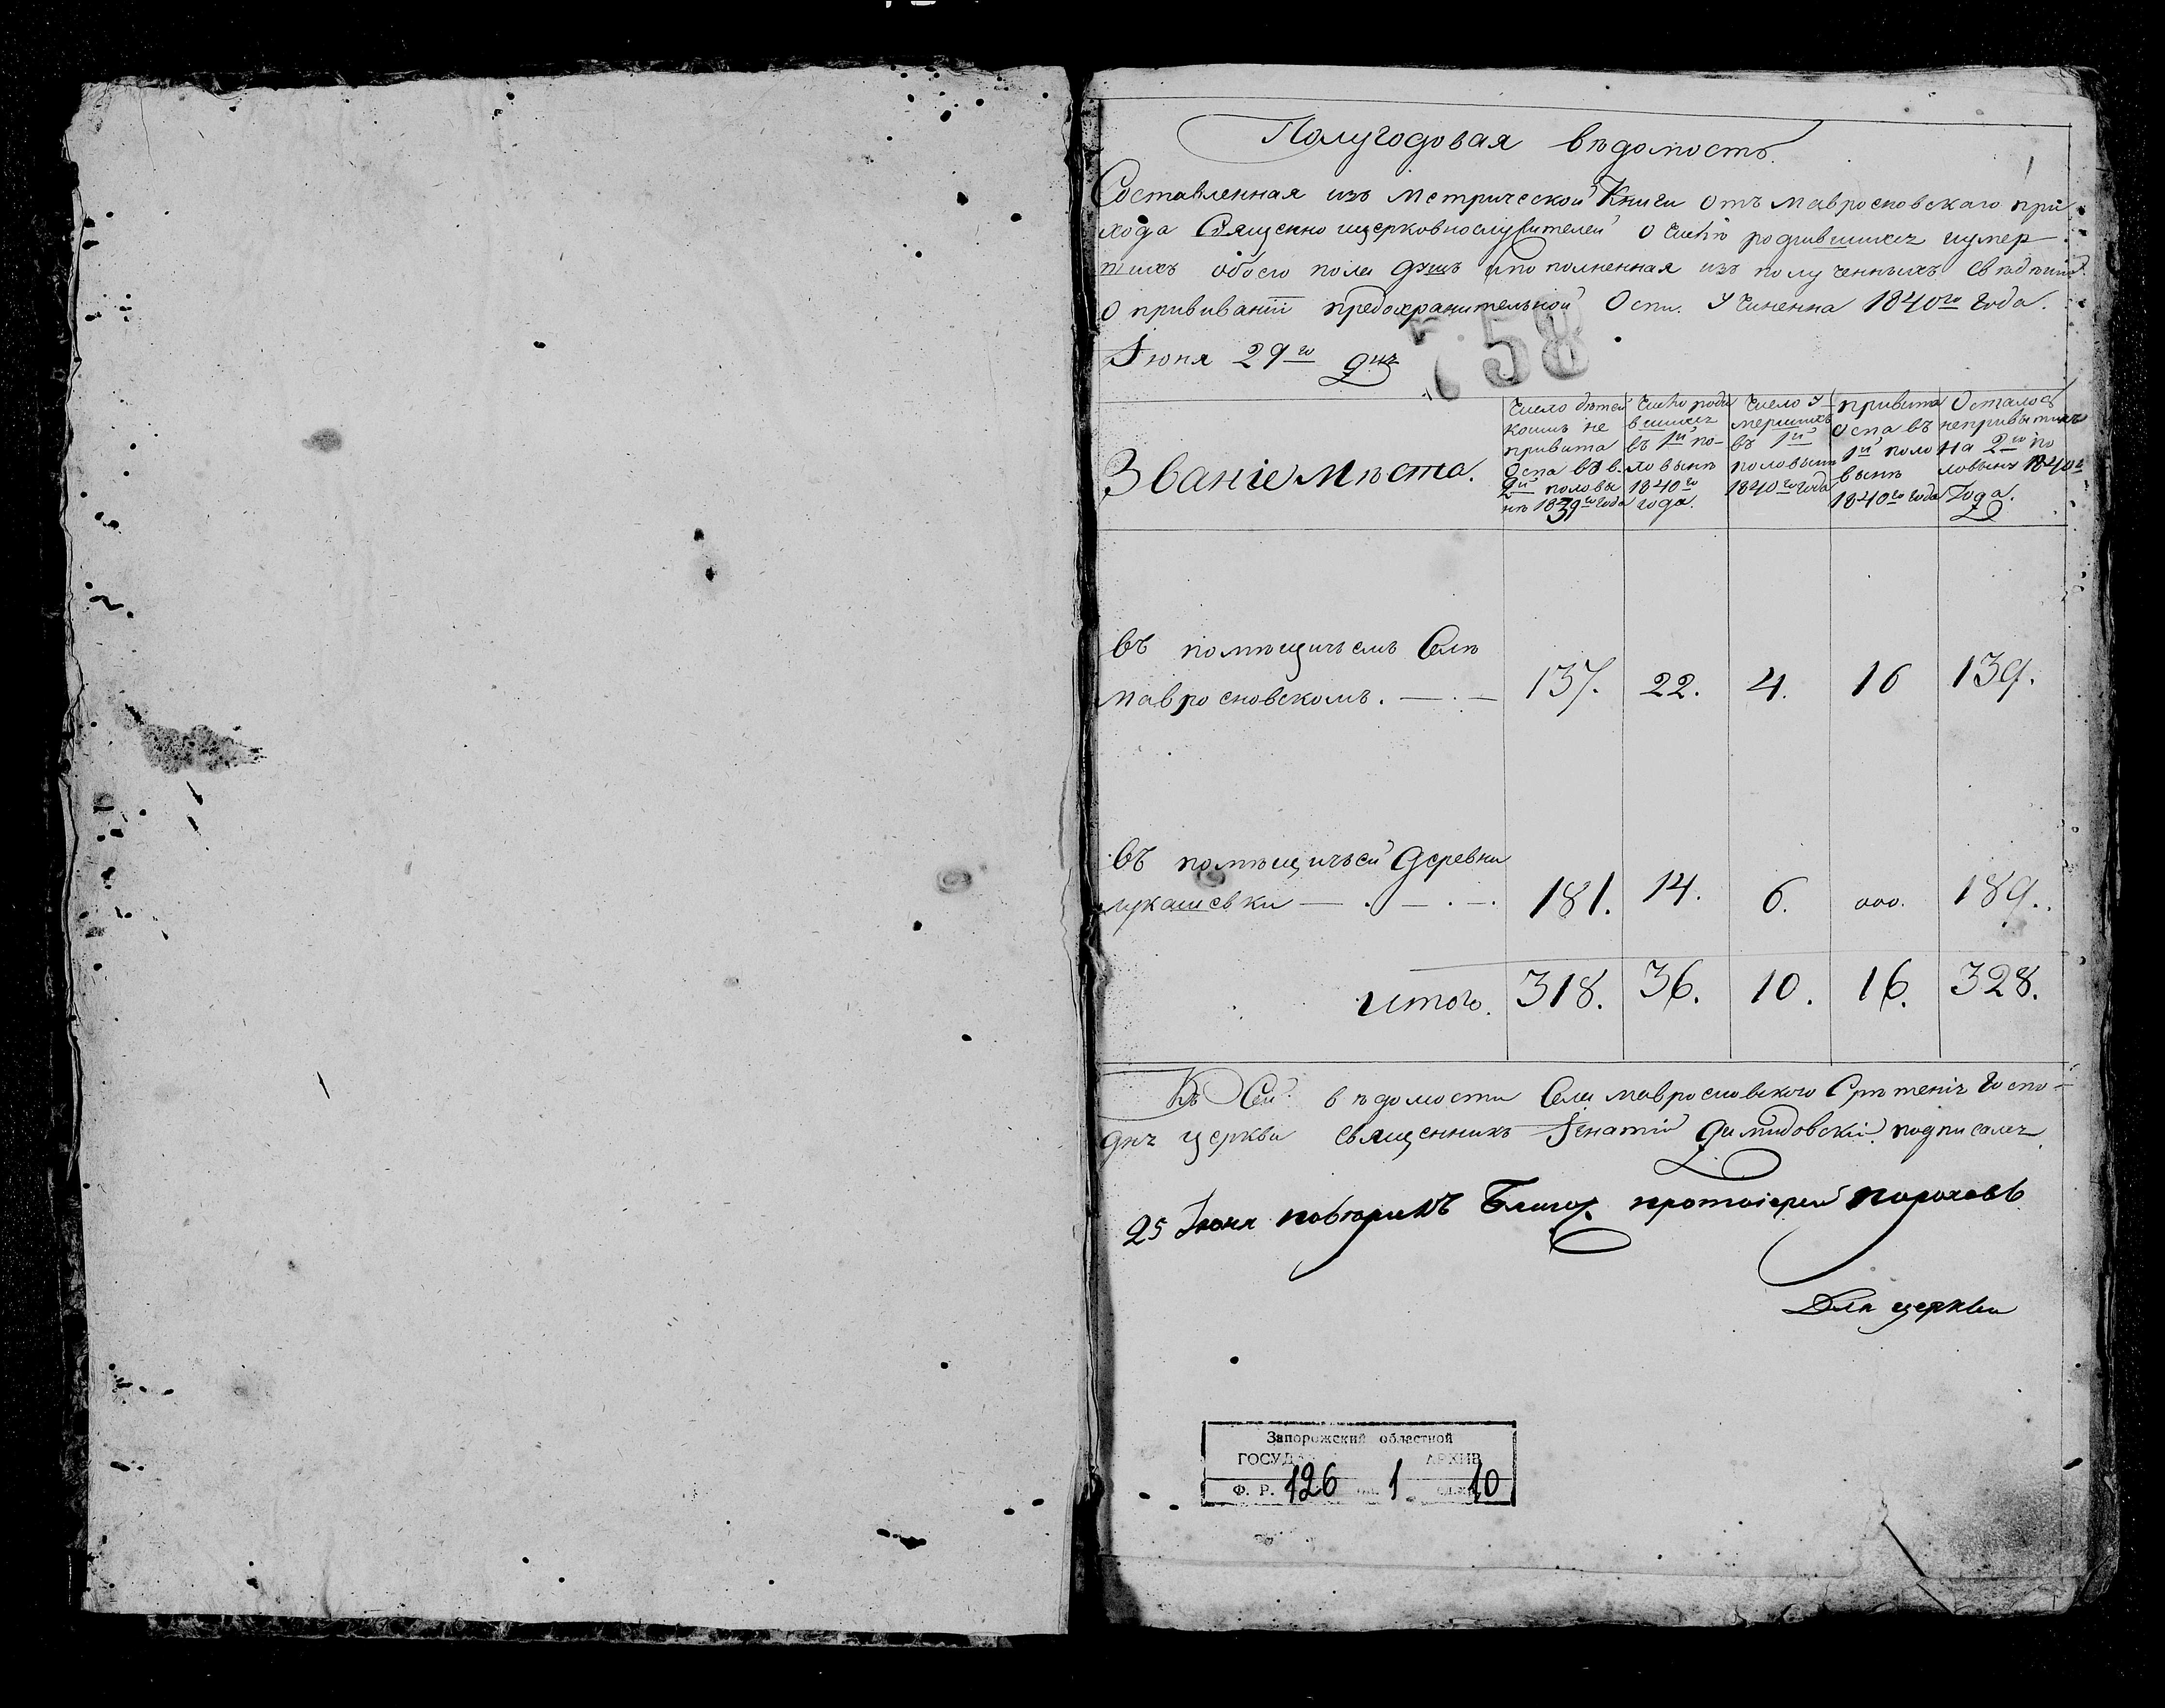 Полугодовая вѣдомость.
1
Составленная изъ Метрической Книги отъ Мавросновскаго при
хода Священно ицерковнослужителей о числѣ родившихся иумер
шихъ обоего пола душъ ипополненная изъ полученныхъ свѣдѣній
о прививаніи предохранительной Оспы. Учиненна 1840го Года.
Іюня 29го дня
758
Званіе Мѣста.
Число дѣтей коимъ не привита Оспа въ в. 2й половы нѣ 1839го Года
Число роди вшихся въ 1й по- ловынѣ 1840го года.
Число у мершихъ въ 1й половынѣ 1840го Года
привита Оспа въ 1й поло вынѣ 1840го Года
Осталось непривытихъ На 2ю по ловыну 1840го Года.
въ помѣщичьемъ Селѣ
Мавросновскомъ. — . — 137. 22. 4. 16 139.
въ помѣщичьей Деревни
лукашевки — . — . — . 181. 14. 6. 000. 189.
Итого. 318. 36. 10. 16. 328.
Къ Сей вѣдомости Села Мавросновского Срѣтенія Госпо-
дня церкви священникъ Игнатій подписался
25 Іюня повѣрилъ Благоч. протоіерей
Для церкви
Запорожский областной
ГОСУД АРХИВ
Ф. Р. 126 оп. 1 ед.хр. 10